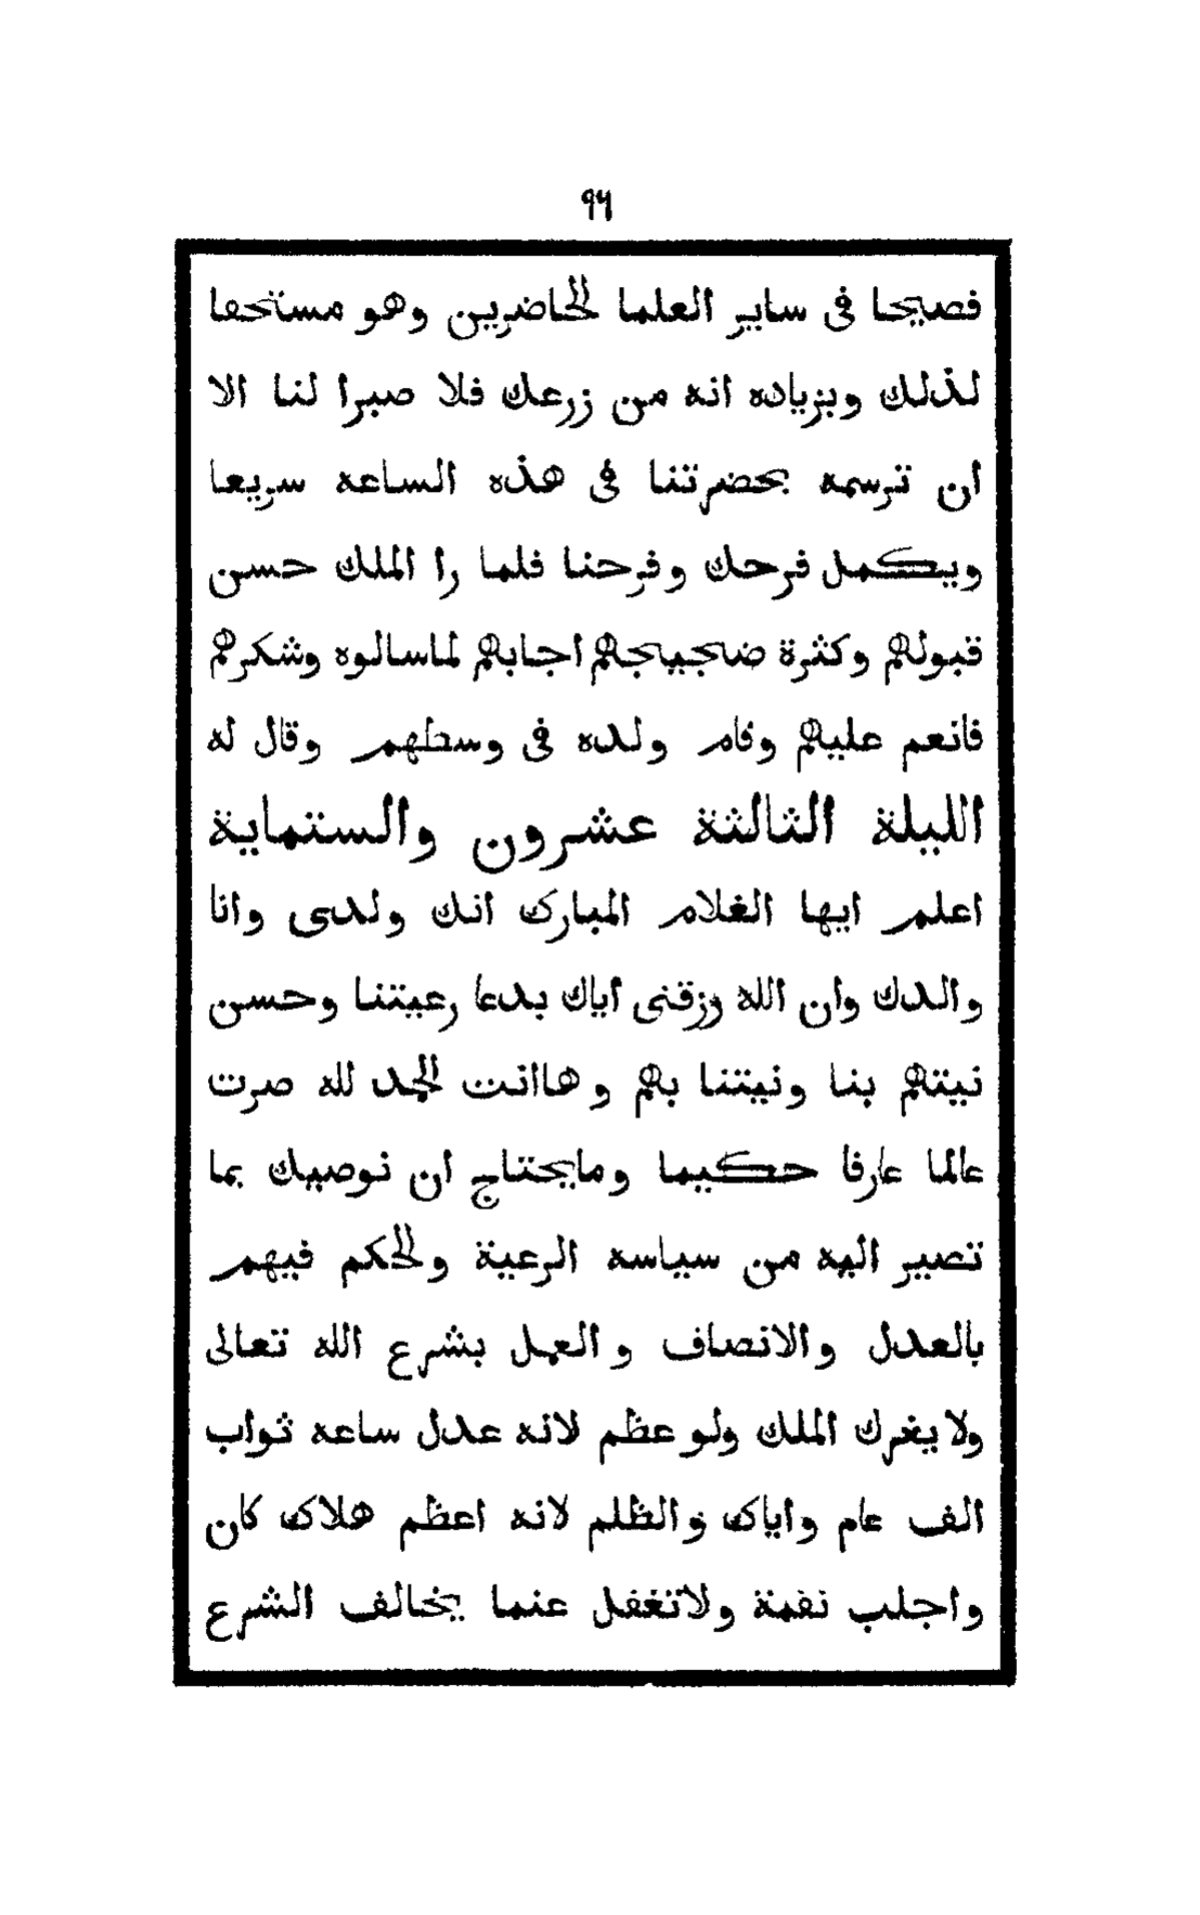 ٩٦
فصيحا فى ساير العلما الحاضرين وهو مستحقا
لذلك وبزياده انه من زرعك فلا صبرا لنا الا
ان ترسمه بحضرتنا فى هذه الساعه سريعا
ويكمل فرحك وفرحنا فلما را الملك حسن
قبولهم وكثرة ضجيجهم اجابهم لماسالوه وشكرهم
فانعم عليهم وقام ولده فى وسطهم وقال له
الليلة الثالثة عشرون والستماية
اعلم ايها الغلام المبارك انك ولدى وانا
والدك وان الله رزقنى اياك بدعا رعيتنا وحسن
نيتهم بنا ونيتنا بهم وهاانت الحمد لله صرت
عالما عارفا حكيما ومايحتاج ان نوصيك بما
تصير اليه من سياسه الرعية والحكم فيهم
بالعدل والانصاف والعمل بشرع الله تعالى
ولايغرك الملك ولو عظم لانه عدل ساعه ثواب
الف عام واياك والظلم لانه اعظم هلاك كان
واجلب نقمة ولاتغفل عنما يخالف الشرع